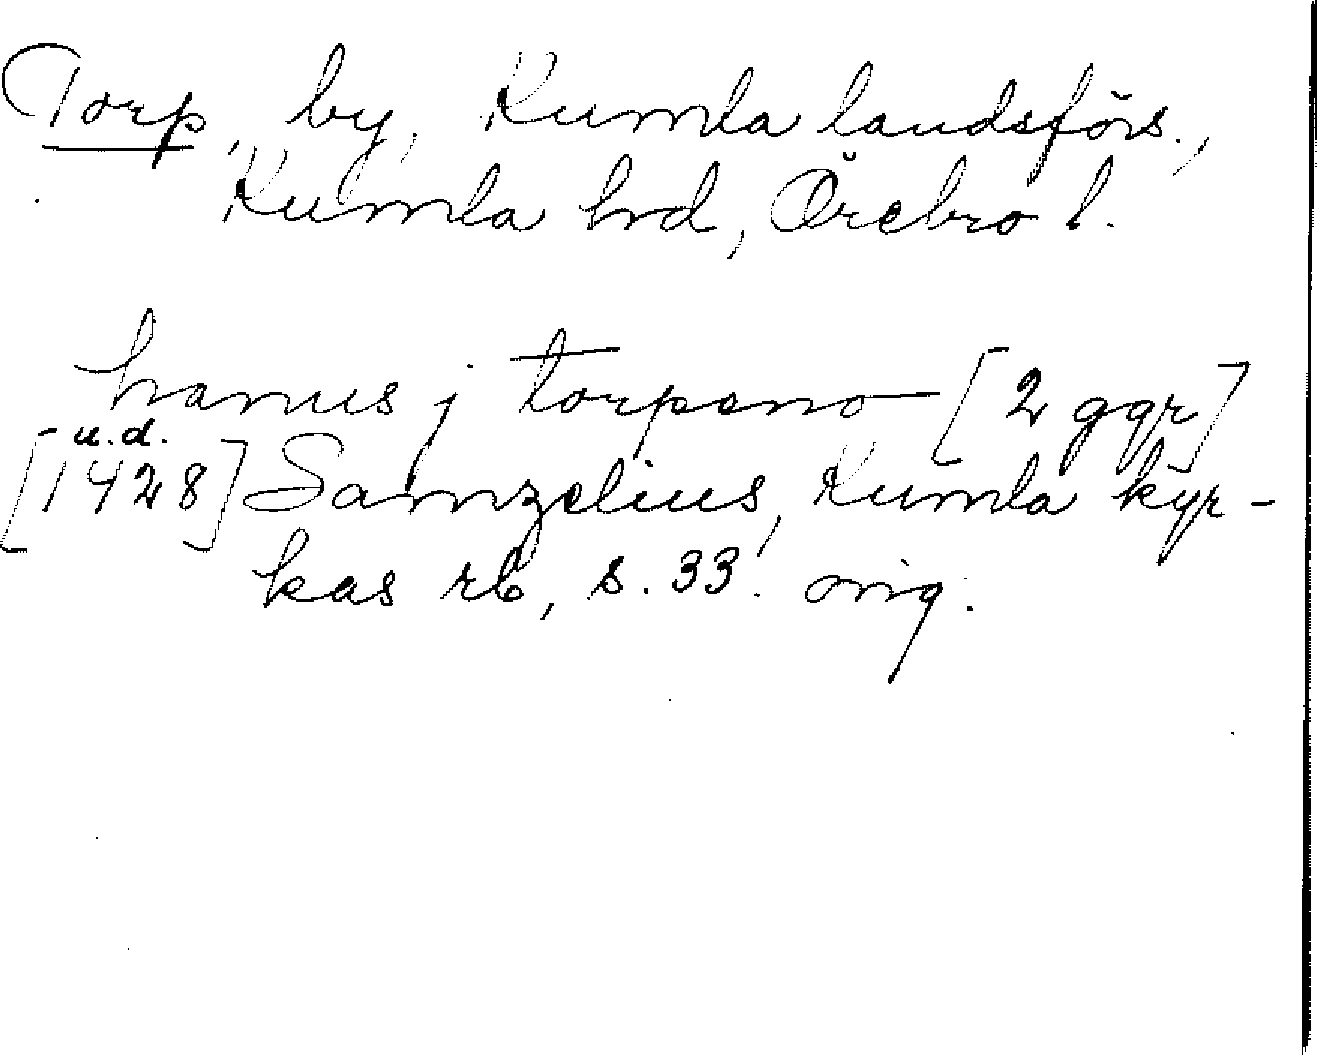 Torp, by, Kumla landsförs.,
Kumla hrd, Örebro l.
hanus j torpeno [2 ggr]
u.d.
[1428] Samzelius, Kumla kyr-
kas rb, s. 33. orig.